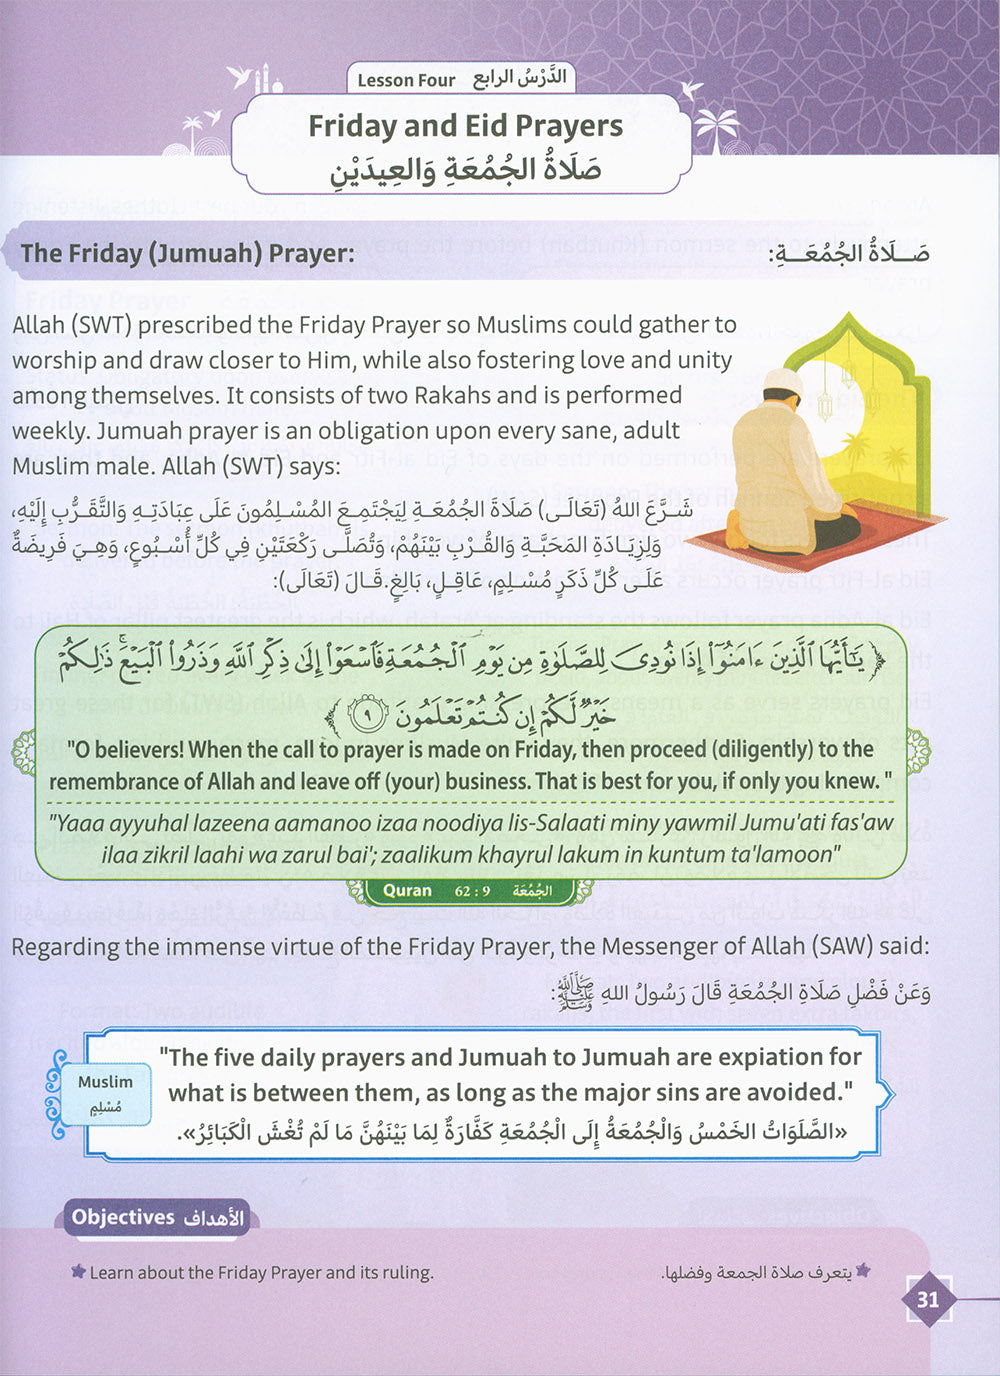 Lesson Four الدَّرْسُ الرابع
Friday and Eid Prayers
صَلَاةُ الجُمُعَةِ وَالعِيدَيْنِ
The Friday (Jumuah) Prayer: صَلَاةُ الجُمُعَةِ:
Allah (SWT) prescribed the Friday Prayer so Muslims could gather to
worship and draw closer to Him, while also fostering love and unity
among themselves. It consists of two Rakahs and is performed
weekly. Jumuah prayer is an obligation upon every sane, adult
Muslim male. Allah (SWT) says:
شَرَّعَ اللهُ (تَعَالَى) صَلَاةَ الجُمُعَةِ لِيَجْتَمِعَ المُسْلِمُونَ عَلَى عِبَادَتِهِ وَالتَّقَرُّبِ إِلَيْهِ،
وَلِزِيَادَةِ المَحَبَّةِ وَالقُرْبِ بَيْنَهُمْ، وَتُصَلَّى رَكْعَتَيْنِ فِي كُلِّ أُسْبُوعٍ، وَهِيَ فَرِيضَةٌ
عَلَى كُلِّ ذَكَرٍ مُسْلِمٍ، عَاقِلٍ، بَالِغٍ. قَالَ (تَعَالَى):
﴿ يَٰٓأَيُّهَا الَّذِينَ ءَامَنُوٓا۟ إِذَا نُودِىَ لِلصَّلَوٰةِ مِن يَوْمِ الْجُمُعَةِ فَاسْعَوْا۟ إِلَىٰ ذِكْرِ اللَّهِ وَذَرُوا۟ الْبَيْعَ ۚ ذَٰلِكُمْ
خَيْرٌ لَّكُمْ إِن كُنتُمْ تَعْلَمُونَ ٩ ﴾
"O believers! When the call to prayer is made on Friday, then proceed (diligently) to the
remembrance of Allah and leave off (your) business. That is best for you, if only you knew. "
"Yaaa ayyuhal lazeena aamanoo izaa noodiya lis-Salaati miny yawmil Jumu'ati fas'aw
ilaa zikril laahi wa zarul bai'; zaalikum khayrul lakum in kuntum ta'lamoon"
Quran 62 : 9 الجُمُعَة
Regarding the immense virtue of the Friday Prayer, the Messenger of Allah (SAW) said:
وَعَنْ فَضْلِ صَلَاةِ الجُمُعَةِ قَالَ رَسُولُ اللهِ ﷺ:
"The five daily prayers and Jumuah to Jumuah are expiation for
what is between them, as long as the major sins are avoided."
«الصَّلَوَاتُ الخَمْسُ وَالْجُمُعَةُ إِلَى الْجُمُعَةِ كَفَّارَةٌ لِمَا بَيْنَهُنَّ مَا لَمْ تُغْشَ الْكَبَائِرُ».
Muslim
مُسْلِمٍ
Objectives الأهداف
Learn about the Friday Prayer and its ruling.
يتعرف صلاة الجمعة وفضلها.
31